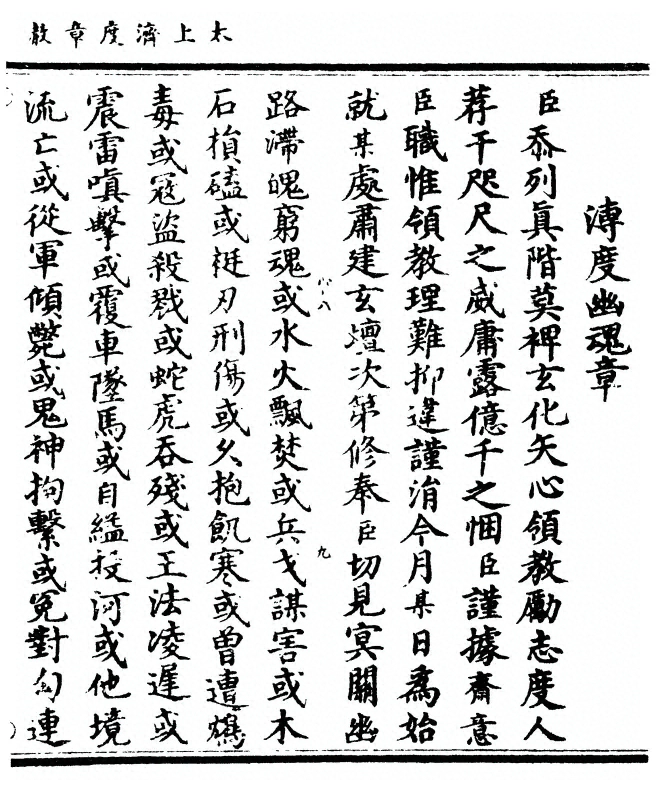 太上濟度章赦
溥度幽魂章
臣忝列眞階莫裨玄化矢心領教勵志度人
荐干咫尺之威庸露億千之悃臣謹據齋意
臣職惟領教理難抑違謹涓今月某日爲始
就某處肅建玄壇次第修奉臣切見冥關幽
八
九
路滯魄窮魂或水火飄焚或兵戈謀害或木
石損磕或梃刃刑傷或久抱飢寒或曾遭鴆
毒或寇盜殺戮或蛇虎吞殘或王法凌遲或
震雷嗔擊或覆車墜馬或自縊投河或他境
流亡或從軍傾斃或鬼神拘繫或冤對勾連